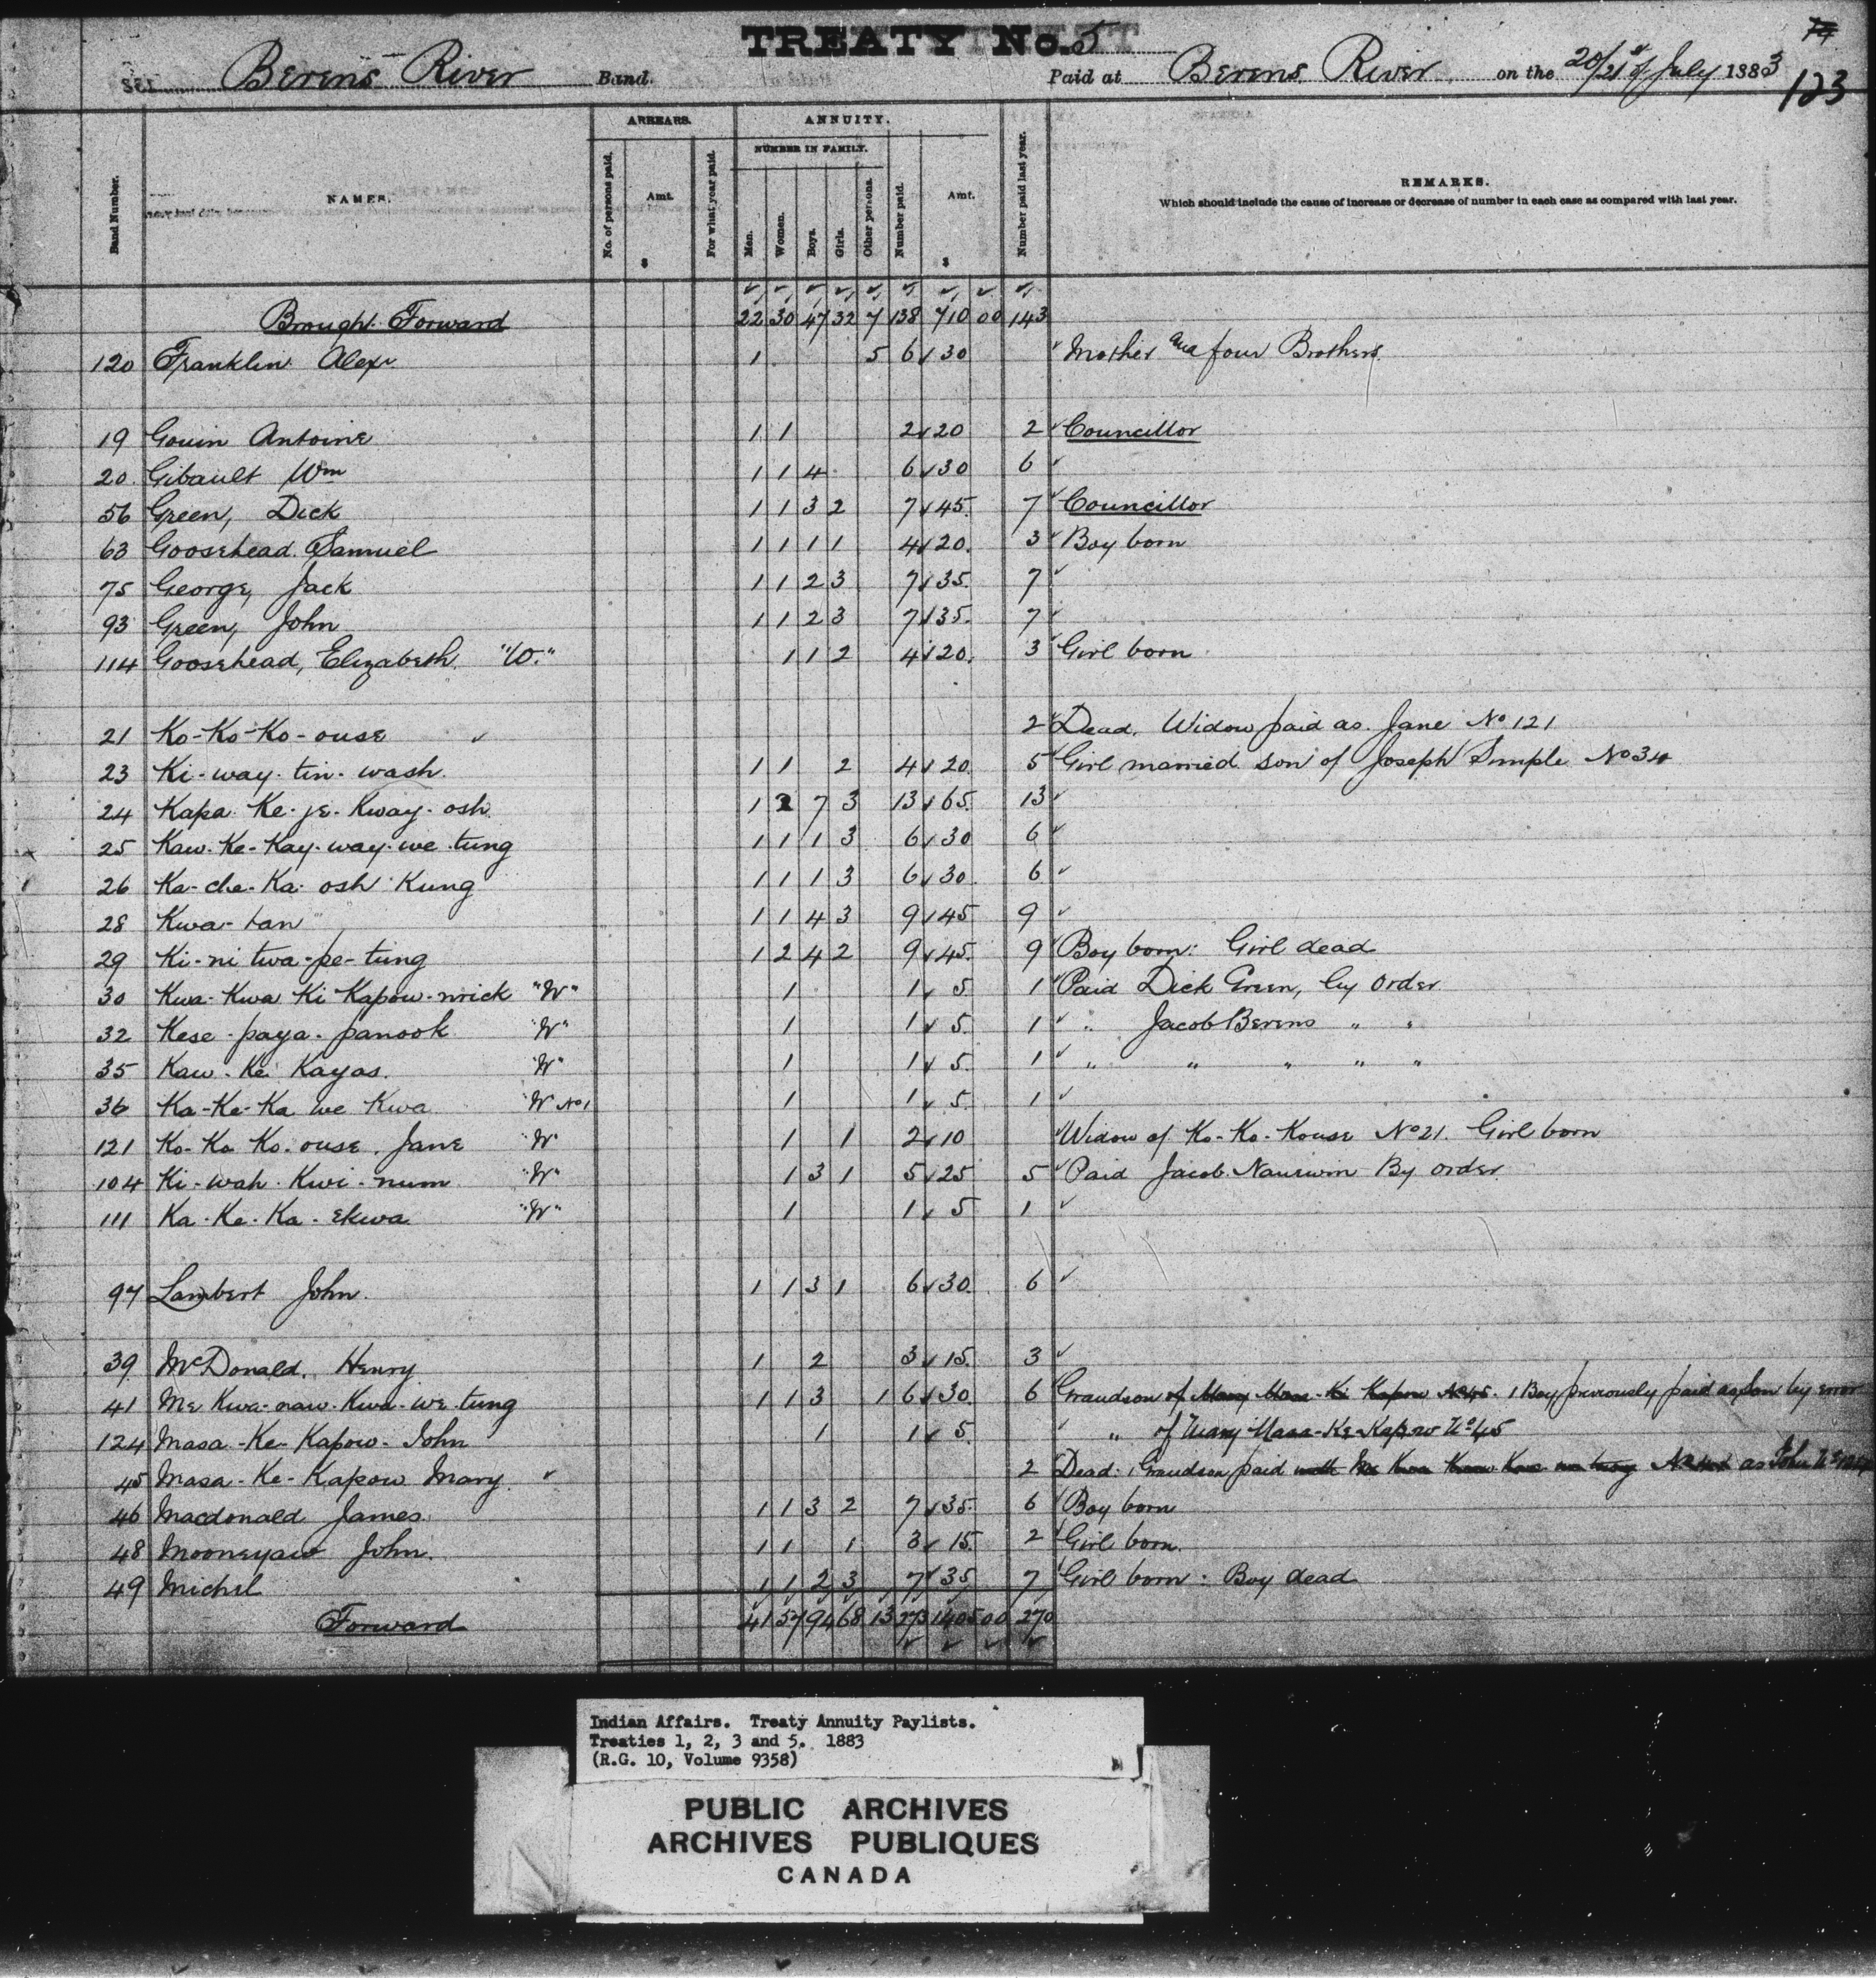 TREATY No. 5
74
Berens River Band. Paid at Berens River on the 20/21st of July 1883
123
ARREARS. ANNUITY.
NUMBER IN FAMILY.
Band Number. NAMES. No. of persons paid. Amt. $ For what year paid. Men. Women. Boys. Girls. Other persons. Number paid. Amt. $ Number paid last year. REMARKS.
Which should include the cause of increase or decrease of number in each case as compared with last year.
Brought Forward 22 30 47 32 7 138 710 00 143
120 Franklin Alexr. 1 5 6 30 Mother and four Brothers.
19 Gouin Antoine 1 1 2 20 2 Councillor
20 Gibault Wm 1 1 4 6 30 6
56 Green, Dick 1 1 3 2 7 45 7 Councillor
63 Goosehead Samuel 1 1 1 1 4 20 3 Boy born
75 George, Jack 1 1 2 3 7 35 7
93 Green, John 1 1 2 3 7 35 7
114 Goosehead, Elizabeth "W." 1 1 2 4 20 3 Girl born
21 Ko-Ko-Ko-ouse 2 Dead. Widow paid as Jane No 121
23 Ki-way-tin-wash 1 1 2 4 20 5 Girl married son of Joseph Simple No 34
24 Kapa-Ke-je-Kway-osh 1 2 7 3 13 65 13
25 Kaw-Ke-Kay-way-we-tung 1 1 1 3 6 30 6
26 Ka-che-Ka-osh Kung 1 1 1 3 6 30 6
28 Kwa-tan 1 1 4 3 9 45 9
29 Ki-ni twa-pe-tung 1 2 4 2 9 45 9 Boy born: Girl dead
30 Kwa-Kwa Ki Kapow-nrick "W" 1 1 5 1 Paid Dick Green, by order
32 Kese-paya-panook "W" 1 1 5 1 " Jacob Berens " "
35 Kaw-Ke Kayas. "W" 1 1 5 1 " " " " "
36 Ka-Ke-Ka we Kwa "W" No 1 1 1 5 1
121 Ko-Ko Ko-ouse, Jane "W" 1 1 2 10 Widow of Ko-Ko-Kouse No 21. Girl born
104 Ki-wah-Kwi-num "W" 1 3 1 5 25 5 Paid Jacob Nauwin By order
111 Ka-Ke-Ka-ekwa "W" 1 1 5 1
97 Lambert John. 1 1 3 1 6 30 6
39 McDonald, Henry 1 2 3 15 3
41 Me Kwa-naw-Kwa-we-tung 1 1 3 1 6 30 6 Grandson of Mary Masa-Ki Kapow No 45. 1 Boy previously paid as Son by error
124 Masa-Ke-Kapow-John 1 1 5 " of Mary Masa-Ke-Kapow No 45
45 Masa-Ke-Kapow Mary 2 Dead: 1 Grandson paid with as John No 124
46 Macdonald James 1 1 3 2 7 35 6 Boy born
48 Mooneyaw John. 1 1 1 3 15 2 Girl born.
49 Michel 1 1 2 3 7 35 7 Girl born: Boy dead
Forward 41 57 94 68 13 273 1405 00 270
Indian Affairs. Treaty Annuity Paylists.
Treaties 1, 2, 3 and 5. 1883
(R.G. 10, Volume 9358)
PUBLIC ARCHIVES
ARCHIVES PUBLIQUES
CANADA